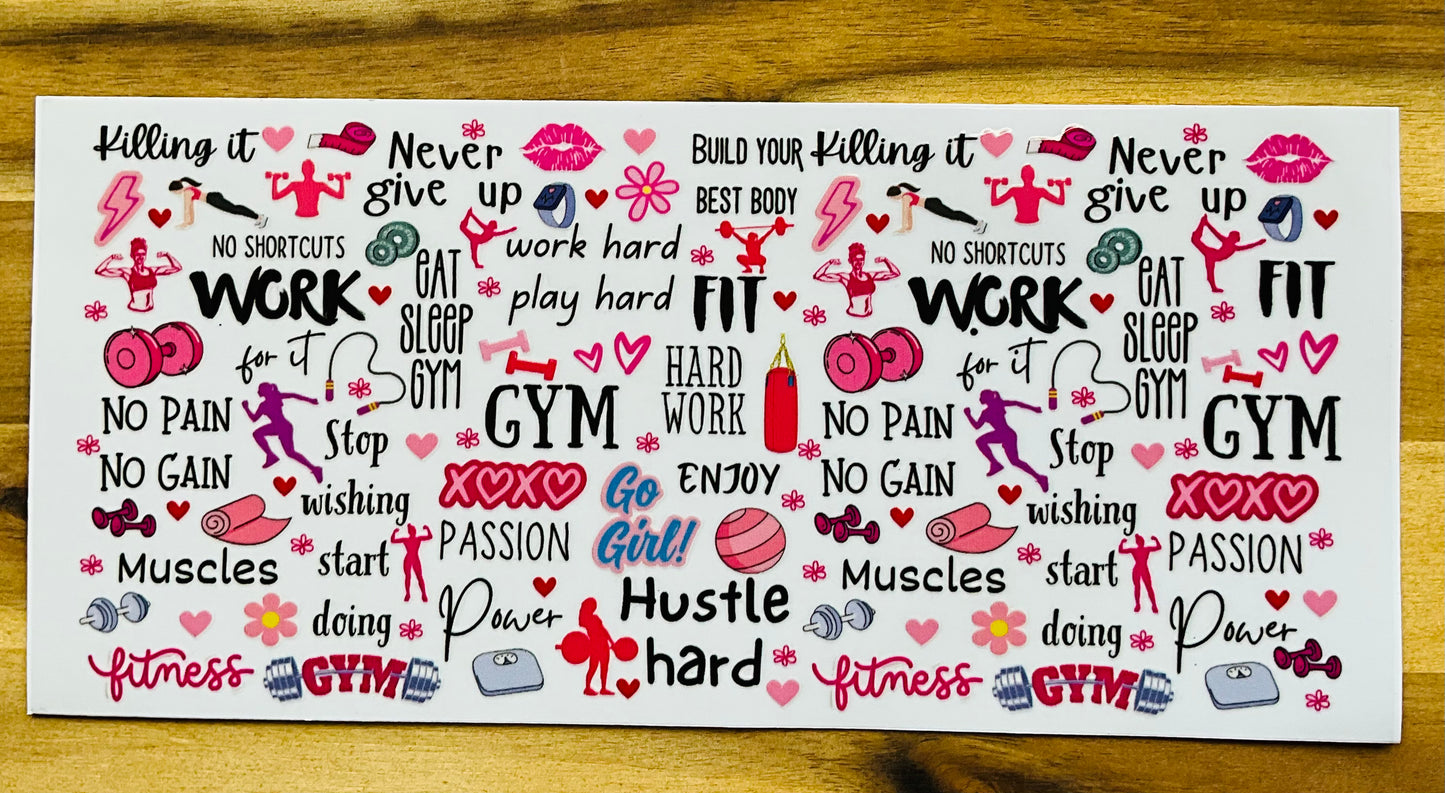 Killing it
Never
give up
BUILD YOUR
BEST BODY
Killing it
Never
give up
NO SHORTCUTS
WORK
for it
EAT
SLEEP
GYM
work hard
play hard
FIT
NO SHORTCUTS
WORK
for it
EAT
SLEEP
GYM
FIT
NO PAIN
NO GAIN
Stop
wishing
start
doing
GYM
HARD
WORK
NO PAIN
NO GAIN
Stop
wishing
start
doing
GYM
XOXO
Go
Girl!
ENJOY
XOXO
Muscles
PASSION
Power
Hustle
hard
Muscles
PASSION
Power
fitness
GYM
fitness
GYM